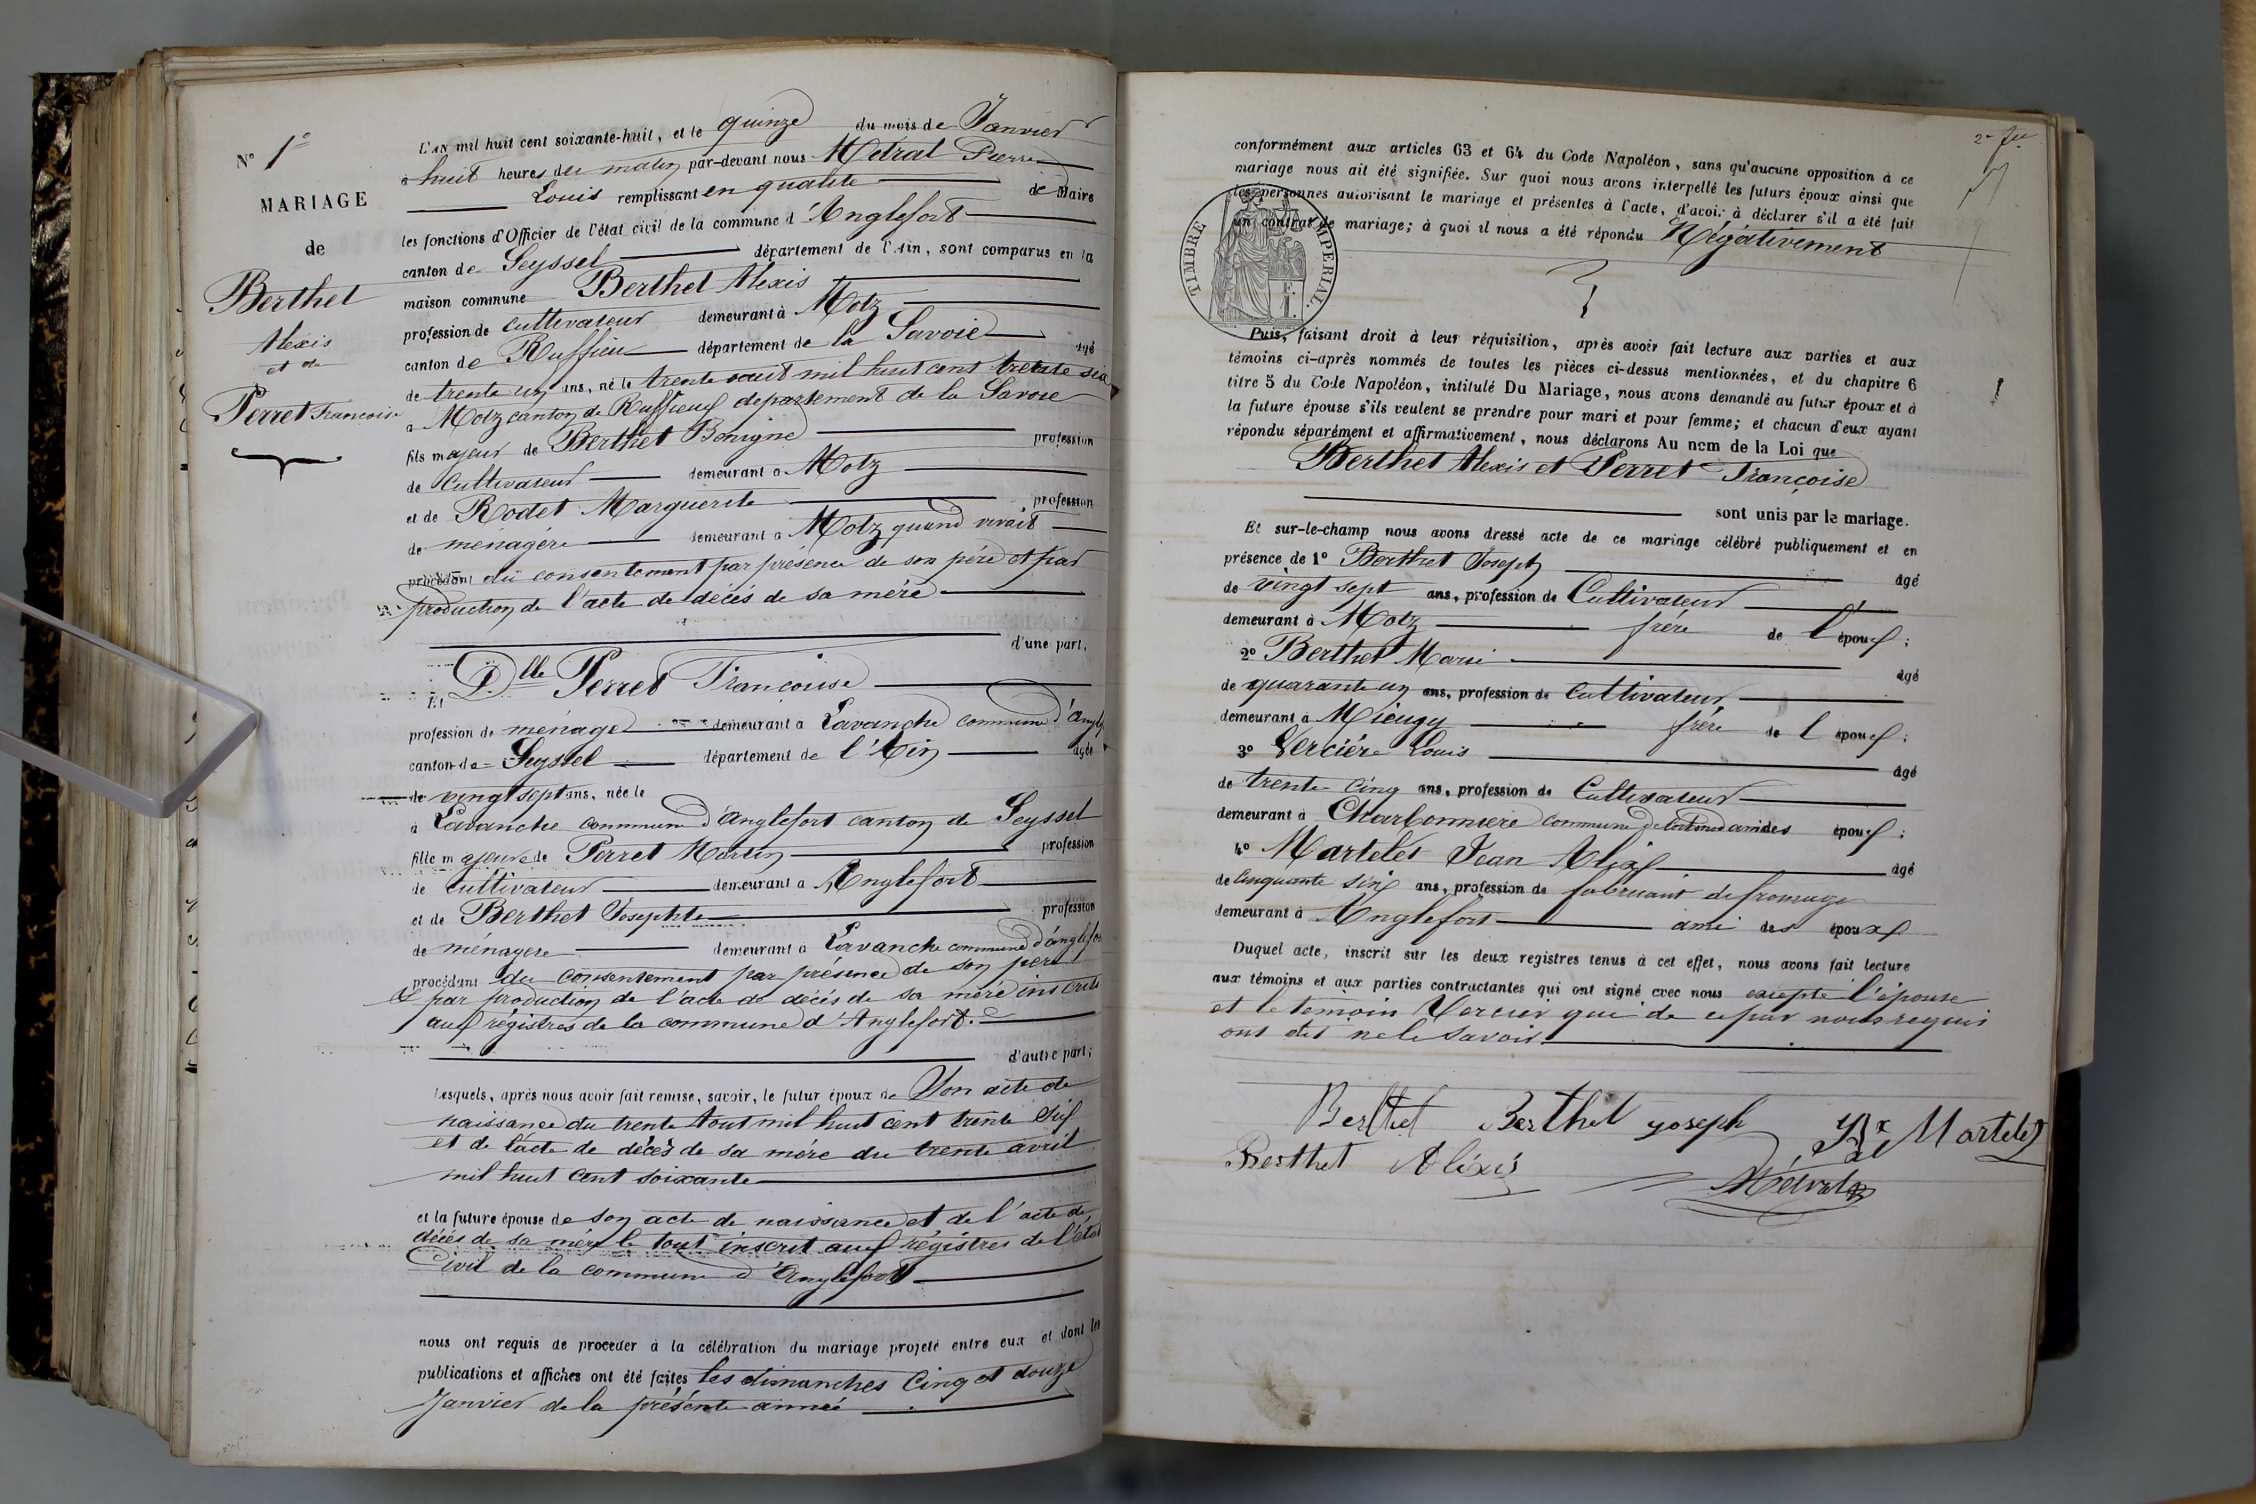 N° 1er
MARIAGE
de
Berthet
Alexis
et de
Perret Francoise
L'AN mil huit cent soixante-huit, et le quinze du mois de Janvier
à huit heures du matin par-devant nous Métral Pierre
Louis remplissant en qualité de Maire
les fonctions d'Officier de l'état civil de la commune d'Anglefort
canton de Seyssel département de l'Ain, sont comparus en la
maison commune Berthet Alexis
profession de cultivateur demeurant à Motz
canton de Ruffieu département de la Savoie âgé
de trente un ans, né le trente août mil huit cent trente six
à Motz canton de Ruffieux département de la Savoie
fils majeur de Berthet Benigne profession
de Cultivateur demeurant à Motz
et de Rodet Marguerite profession
de ménagère demeurant à Motz quand vivait
procédant du consentement par présence de son père et par
production de l'acte de décés de sa mère
d'une part,
Et Dlle Perret Francoise
profession de ménage demeurant à Lavanche commune d'Anglef
canton de Seyssel département de l'Ain âgée
de vingt sept ans, née le
à Lavanche commune d'Anglefort canton de Seyssel
fille majeure de Perret Martin profession
de cultivateur demeurant à Anglefort
et de Berthet Josephte profession
de ménagere demeurant à Lavanche commune d'anglefor
procédant du consentement par présence de son père
& par production de l'acte de décés de sa mère inscrits
aux régistres de la commune d'Anglefort.
d'autre part;
Lesquels, après nous avoir fait remise, savoir, le futur époux de Son acte de
naissance du trente aout mil huit cent trente six
et de l'acte de décès de sa mère du trente avril
mil huit cent soixante
et la future épouse de son acte de naissance et de l'acte de
décés de sa mère le tout inscrit aux régistres de l'état
Civil de la commune d'Anglefort
nous ont requis de procéder à la célébration du mariage projeté entre eux et dont les
publications et affiches ont été faites les dimanches Cinq et douze
Janvier de la présente année
2e
conformément aux articles 63 et 64 du Code Napoléon, sans qu'aucune opposition à ce
mariage nous ait été signifiée. Sur quoi nous avons interpellé les futurs époux ainsi que
les personnes autorisant le mariage et présentes à l'acte, d'avoir à déclarer s'il a été fait
un contrat de mariage; à quoi il nous a été répondu Négativement
TIMBRE IMPERIAL.
Puis, faisant droit à leur réquisition, après avoir fait lecture aux parties et aux
témoins ci-après nommés de toutes les pièces ci-dessus mentionnées, et du chapitre 6
titre 5 du Code Napoléon, intitulé Du Mariage, nous avons demandé au futur époux et à
la future épouse s'ils veulent se prendre pour mari et pour femme; et chacun d'eux ayant
répondu séparément et affirmativement, nous déclarons Au nom de la Loi que
Berthet Alexis et Perret Françoise
sont unis par le mariage.
Et sur-le-champ nous avons dressé acte de ce mariage célébré publiquement et en
présence de 1° Berthet Joseph âgé
de vingt sept ans, profession de Cultivateur
demeurant à Motz frére de l'époux;
2° Berthet Marie âgé
de quarante un ans, profession de cultivateur
demeurant à Mieugy frére de l époux;
3° Vercière Louis âgé
de trente cinq ans, profession de Cultivateur
demeurant à Charbonniere commune de ami des époux;
4° Martelet Jean Alix âgé
de Cinquante six ans, profession de fabricant de fromage
demeurant à Anglefort ami des époux
Duquel acte, inscrit sur les deux registres tenus à cet effet, nous avons fait lecture
aux témoins et aux parties contractantes qui ont signé avec nous excepté l'épouse
et le témoin Vercier qui de ce par nous requis
ont dit ne le savoir.
Berthet Berthet joseph Jx Martelet
Berthet Aléxis Métral